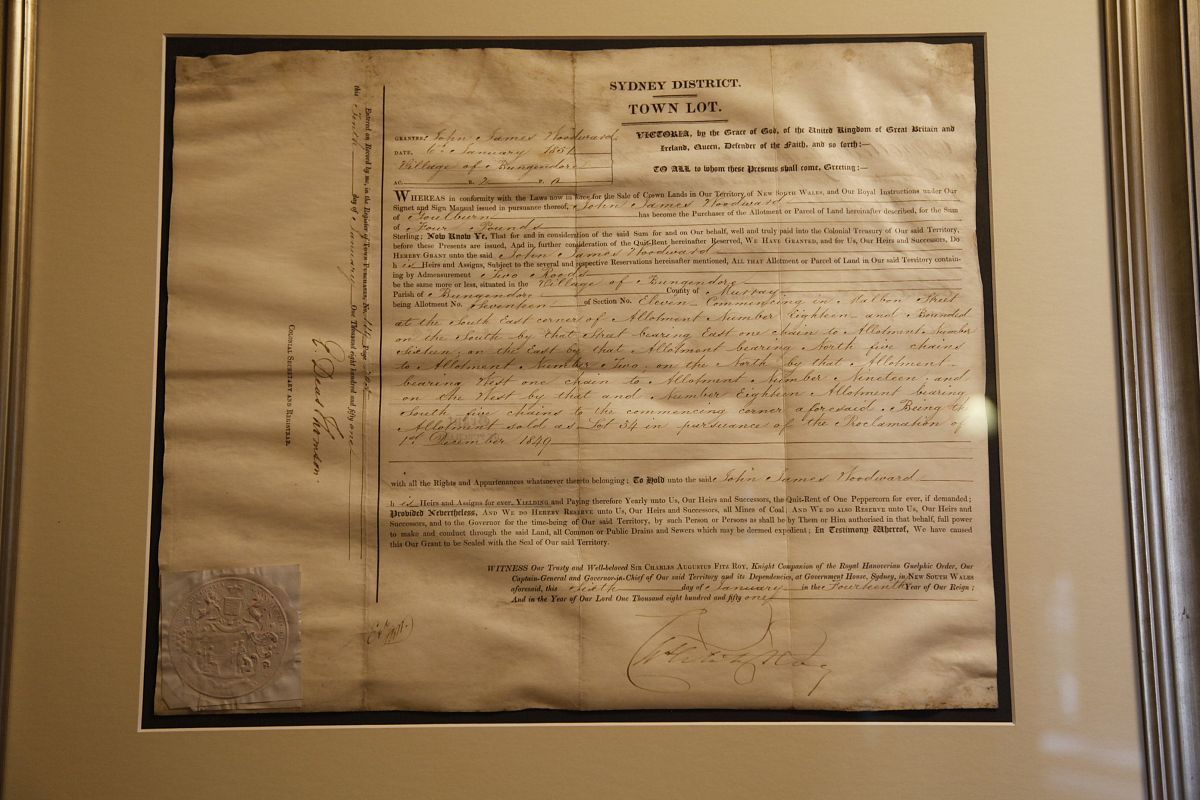 SYDNEY DISTRICT.
TOWN LOT.
GRANTEE: John James Woodward
DATE, 6th January 1851
Village of Bungendore
AC. R. 2 P. 0
VICTORIA, by the Grace of God, of the United Kingdom of Great Britain and
Ireland, Queen, Defender of the Faith, and so forth:—
TO ALL to whom these Presents shall come, Greeting:—
WHEREAS in conformity with the Laws now in force for the Sale of Crown Lands in Our Territory of NEW SOUTH WALES, and Our Royal Instructions under Our
Signet and Sign Manual issued in pursuance thereof, John James Woodward
of Goulburn has become the Purchaser of the Allotment or Parcel of Land hereinafter described, for the Sum
of Four Pounds
Sterling; Now Know Ye, That for and in consideration of the said Sum for and on Our behalf, well and truly paid into the Colonial Treasury of Our said Territory,
before these Presents are issued, And in further consideration of the Quit-Rent hereinafter Reserved, WE HAVE GRANTED, and for Us, Our Heirs and Successors, DO
HEREBY GRANT unto the said John James Woodward
his Heirs and Assigns, Subject to the several and respective Reservations hereinafter mentioned, ALL THAT Allotment or Parcel of Land in Our said Territory contain-
ing by Admeasurement Two Roods
be the same more or less, situated in the Village of Bungendore
Parish of Bungendore County of Murray
being Allotment No. Seventeen of Section No. Eleven Commencing in Malbon Street
at the South East corner of Allotment Number Eighteen and Bounded
on the South by that Street bearing East one chain to Allotment Number
Sixteen; on the East by that Allotment bearing North five chains
to Allotment Number Two; on the North by that Allotment
bearing West one chain to Allotment Number Nineteen; and
on the West by that and Number Eighteen Allotment bearing
South five chains to the commencing corner aforesaid. Being the
Allotment sold as Lot 34 in pursuance of the Proclamation of
1st December 1849
with all the Rights and Appurtenances whatsoever thereto belonging; To Hold unto the said John James Woodward
his Heirs and Assigns for ever, YIELDING and Paying therefore Yearly unto Us, Our Heirs and Successors, the Quit-Rent of One Peppercorn for ever, if demanded;
Provided Nevertheless, AND WE DO HEREBY RESERVE unto Us, Our Heirs and Successors, all Mines of Coal; AND WE DO ALSO RESERVE unto Us, Our Heirs and
Successors, and to the Governor for the time-being of Our said Territory, by such Person or Persons as shall be by Them or Him authorised in that behalf, full power
to make and conduct through the said Land, all Common or Public Drains and Sewers which may be deemed expedient; In Testimony Whereof, We have caused
this Our Grant to be Sealed with the Seal of Our said Territory.
WITNESS Our Trusty and Well-beloved SIR CHARLES AUGUSTUS FITZ ROY, Knight Companion of the Royal Hanoverian Guelphic Order, Our
Captain-General and Governor-in-Chief of Our said Territory and its Dependencies, at Government House, Sydney, in NEW SOUTH WALES
aforesaid, this Sixth day of January in the Fourteenth Year of Our Reign;
And in the Year of Our Lord One Thousand eight hundred and fifty one
Entered on Record by me, in the Register of TOWN PURCHASES, No. Page
this Tenth day of January One Thousand eight hundred and fifty one
E Deas Thomson
COLONIAL SECRETARY AND REGISTRAR.